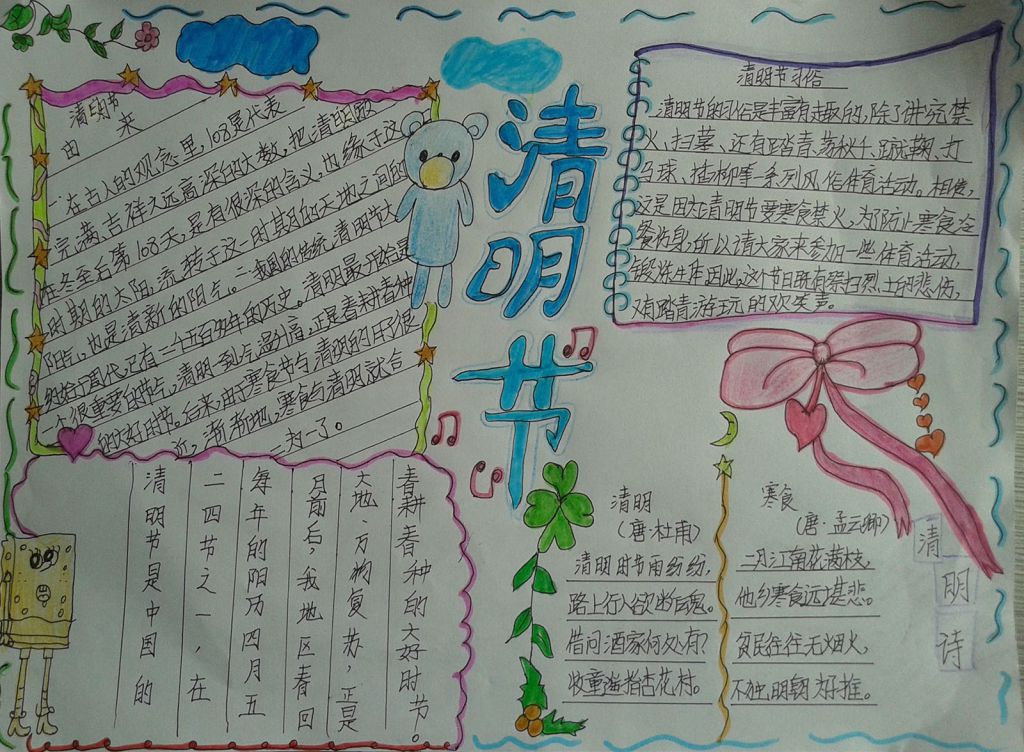 清明节
清明节
来
由
在古人的观念里,108是代表
完、满、吉祥久远高深的大数,把清明放
在冬至后第108天,是有很深的含义,也缘于这
时期的太阳流转于这一时期的天地之间的
阳气,也是清新的阳气。二我国的传统,清明节大
约始于周代,已有二千五百多年的历史。清明最开始是
一个很重要的节气,清明一到气温升高,正是春耕春种
的大好时节。后来,由于寒食节与清明的日子很
近,渐渐地,寒食与清明就合
为一了。
清明节习俗
清明节的习俗是丰富有趣的,除了讲究禁
火、扫墓、还有踏青、荡秋千、蹴鞠、打
马球、插柳等一系列风俗体育活动。相传,
这是因为清明节要寒食禁火,为了防止寒食冷
餐伤身,所以请大家来参加一些体育活动,
锻炼身体。因此,这个节日既有祭扫烈士的悲伤,
又有踏青游玩的欢笑声。
清明节是中国的
二四节之一,在
每年的阳历四月五
日前后,我地区春回
大地·万物复苏,正是
春耕春种的大好时节。
清明
(唐·杜甫)
清明时节雨纷纷,
路上行人欲断魂。
借问酒家何处有?
牧童遥指杏花村。
寒食
(唐·孟云卿)
二月江南花满枝,
他乡寒食远堪悲。
贫民往往无烟火,
不独明朝为好推。
清
明
诗